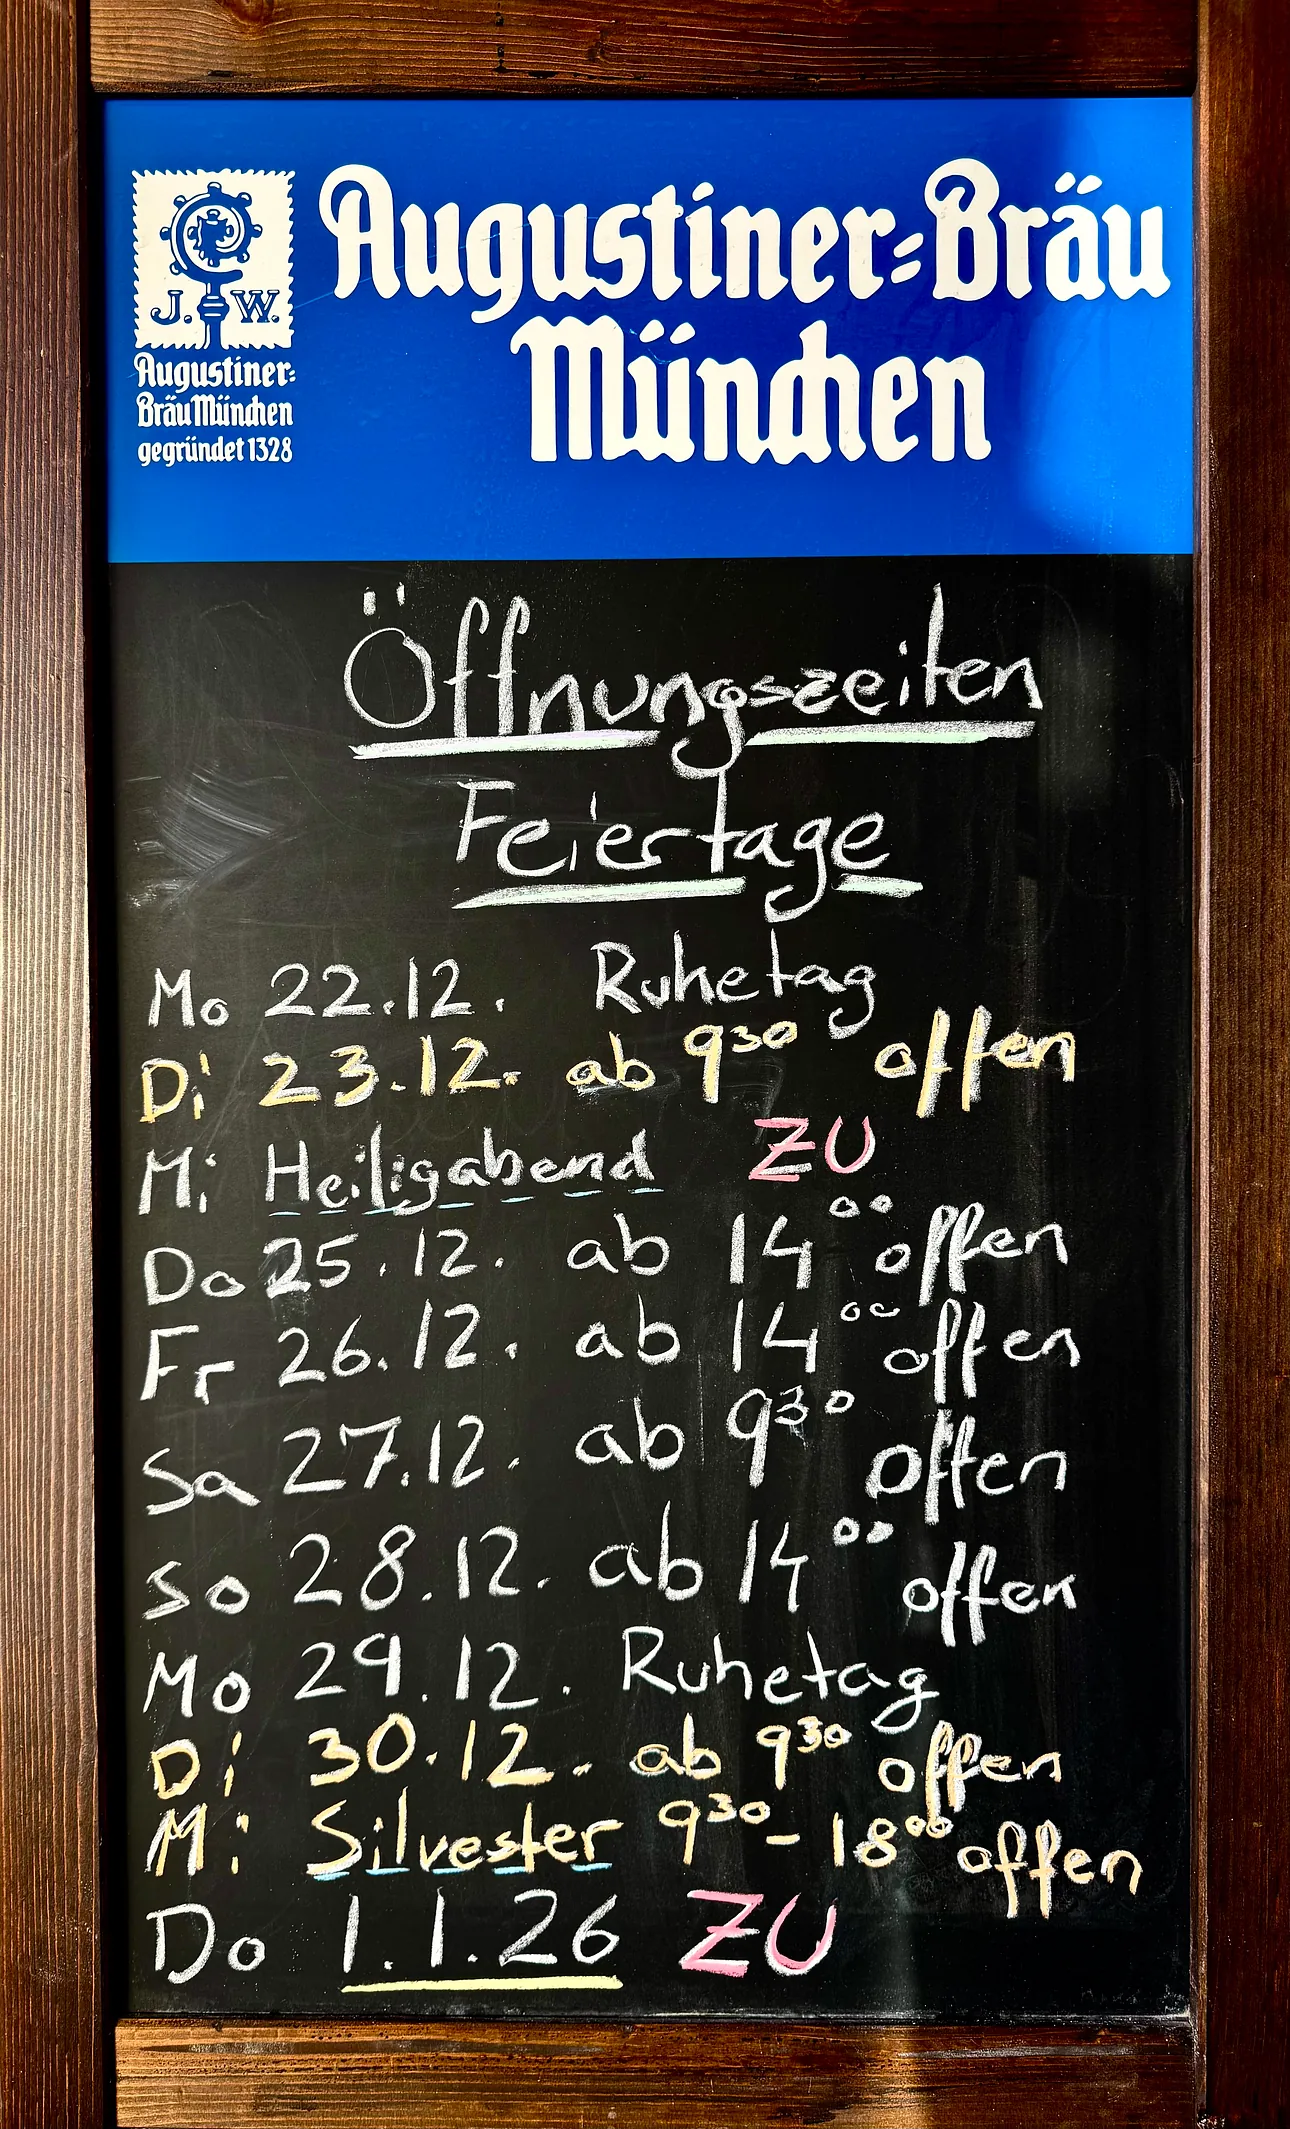 Augustiner-Bräu
München
J. W.
Augustiner-
Bräu München
gegründet 1328
Öffnungszeiten
Feiertage
Mo 22.12. Ruhetag
Di 23.12. ab 9³⁰ offen
Mi Heiligabend ZU
Do 25.12. ab 14⁰⁰ offen
Fr 26.12. ab 14⁰⁰ offen
Sa 27.12. ab 9³⁰ offen
So 28.12. ab 14⁰⁰ offen
Mo 29.12. Ruhetag
Di 30.12. ab 9³⁰ offen
Mi Silvester 9³⁰ - 18⁰⁰ offen
Do 1.1.26 ZU